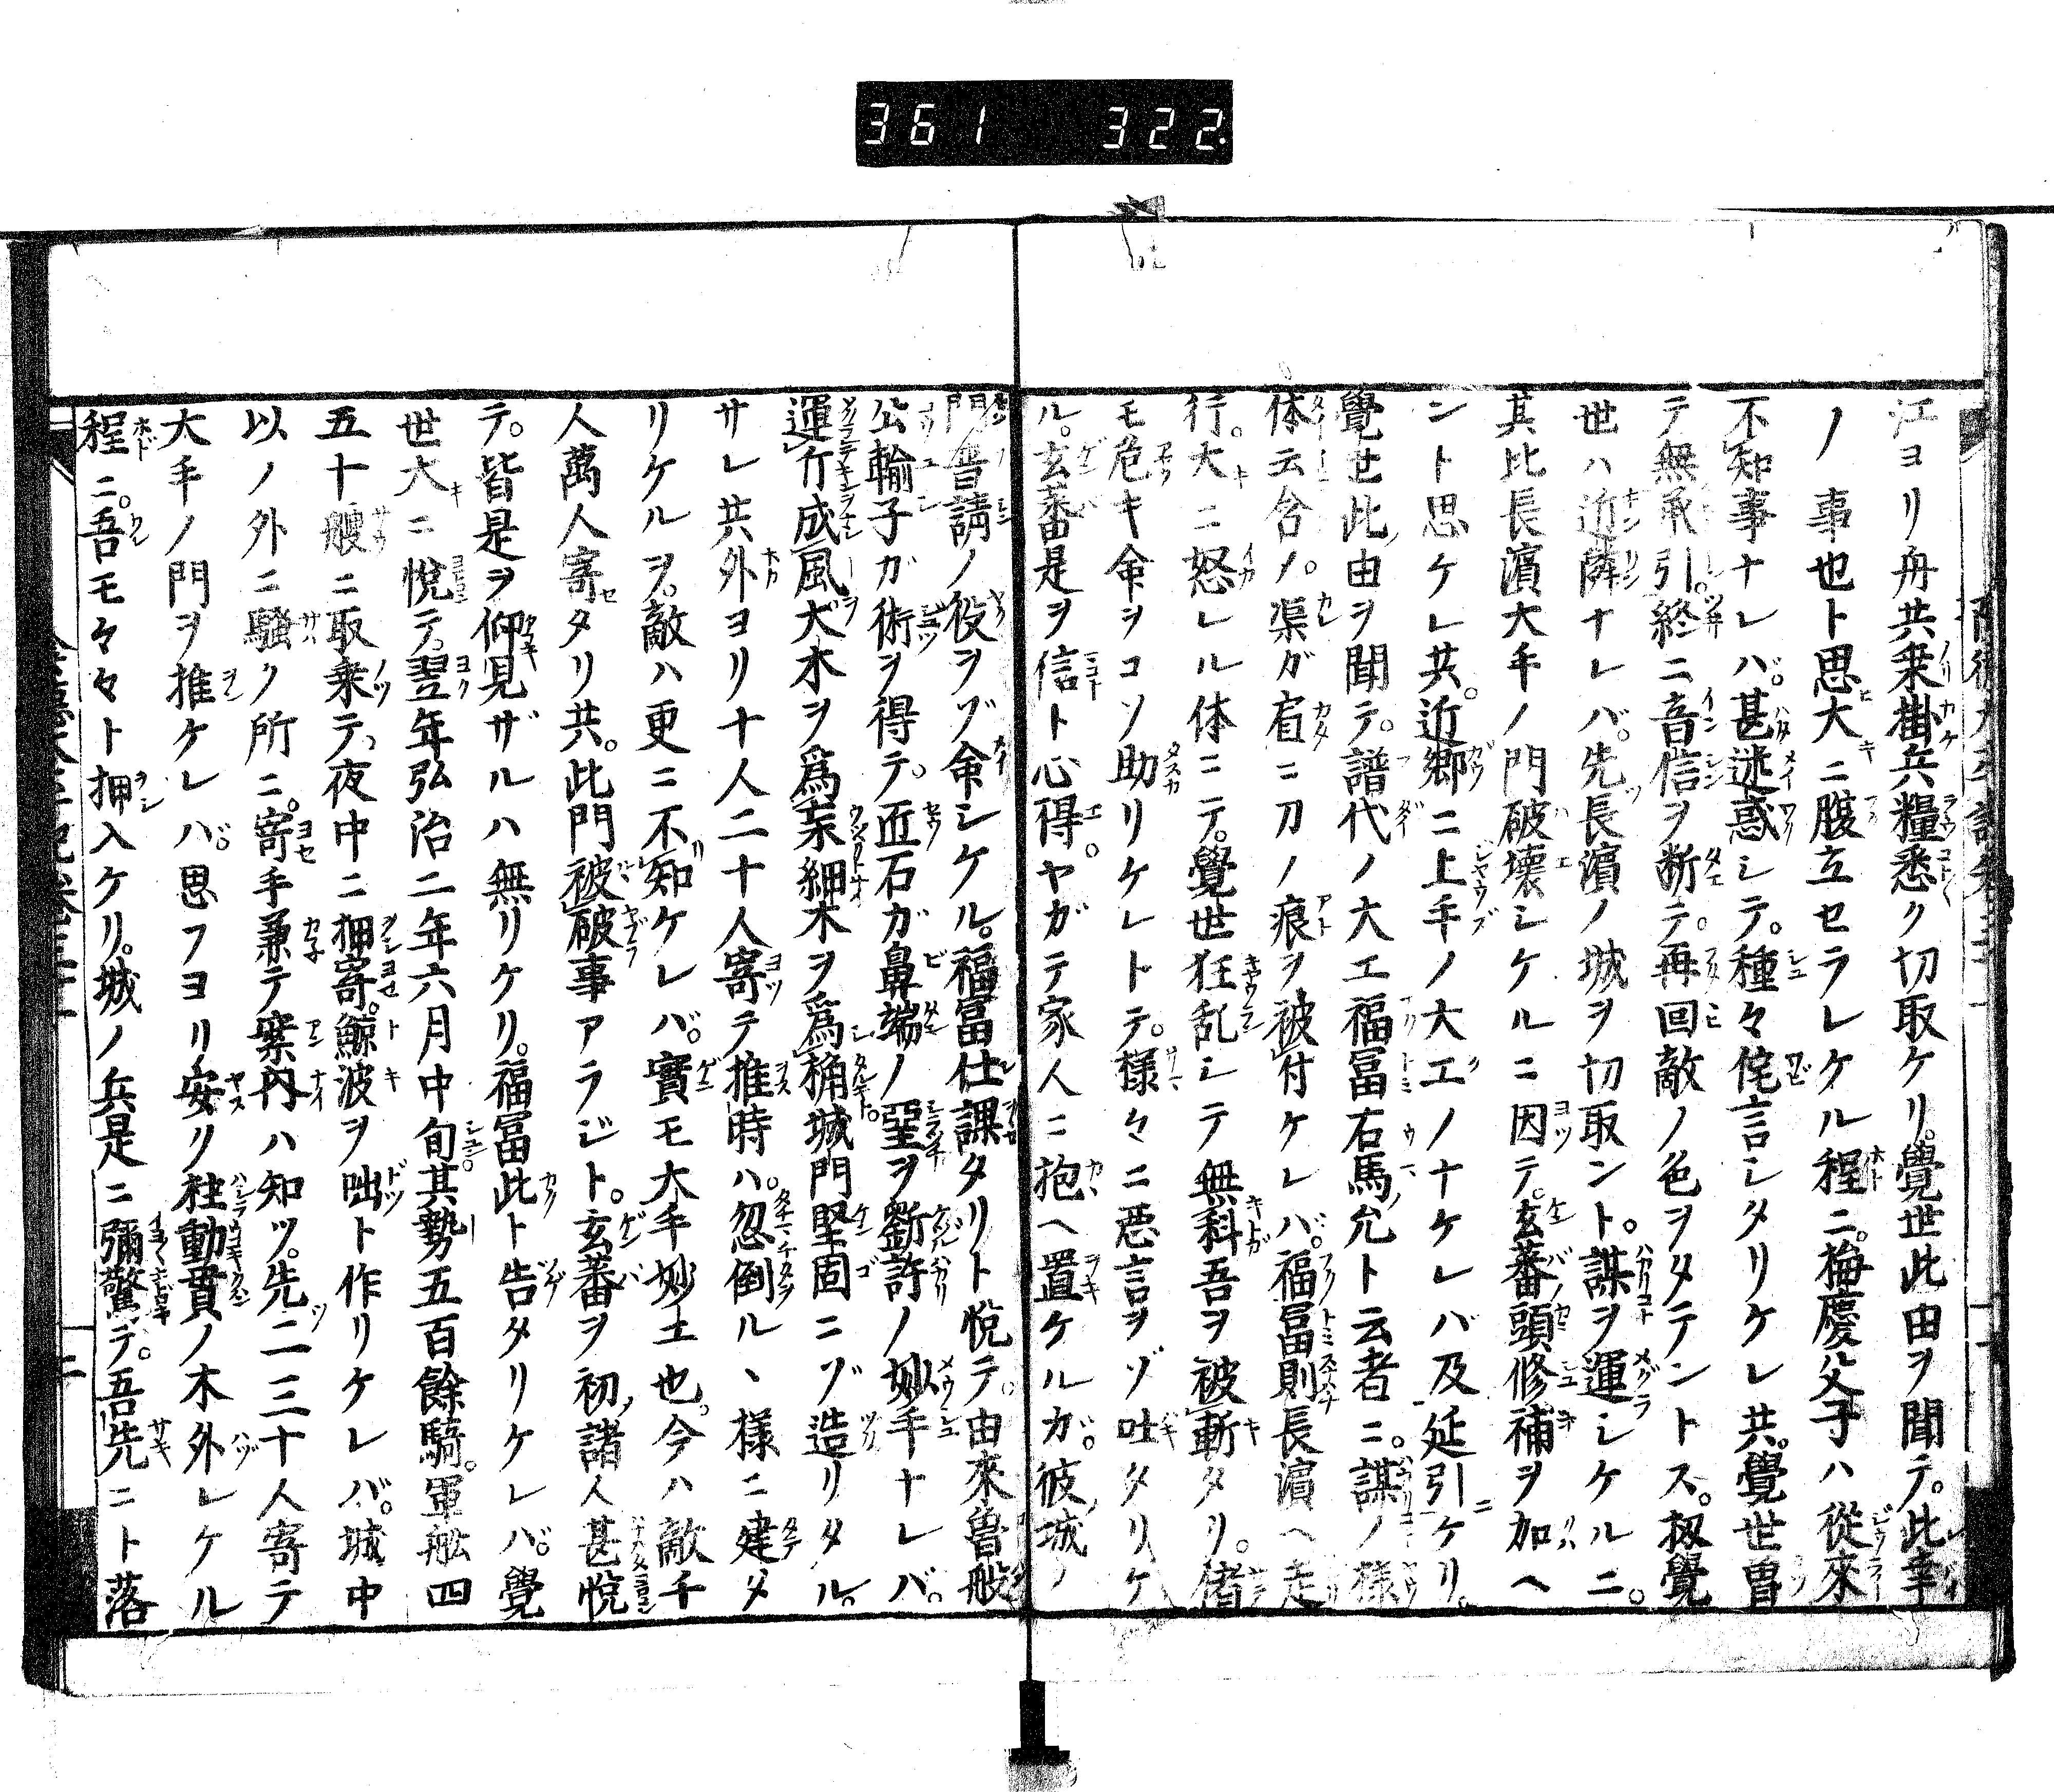 361 322
江ヨリ舟共乗掛兵糧悉ク切取ケリ。覺世此由ヲ聞テ。此幸
ノ事也ト思大ニ腹立セラレケル程ニ。梅慶父子ハ從來
不知事ナレバ。甚迷惑シテ。種々侘言シタリケレ共。覺世曽
テ無承引。終ニ音信ヲ断テ。再回敵ノ色ヲタテントス。扨覺
世ハ近隣ナレバ。先長濵ノ城ヲ切取ント。謀ヲ運シケルニ。
其比長濵大手ノ門破壊シケルニ因テ。玄蕃頭修補ヲ加ヘ
ント思ケレ共。近郷ニ上手ノ大工ノナケレバ及延引ケリ。
覺世此由ヲ聞テ。譜代ノ大工福冨右馬允ト云者ニ。謀ノ様
体云含ノ。渠ガ肩ニ刀ノ痕ヲ被付ケレバ。福冨則長濵ヘ走
行。大ニ怒レル体ニテ。覺世狂乱シテ無科吾ヲ被斬タリ。偖
モ危キ命ヲコソ助リケレトテ。様々ニ悪言ヲゾ吐タリケ
ル。玄蕃是ヲ信ト心得。ヤガテ家人ニ抱ヘ置ケルガ。彼城ノ
門普請ノ役ヲゾ命シケル。福冨仕課タリト悦テ。由來魯般
公輸子ガ術ヲ得テ。匠石ガ鼻端ノ堊ヲ斲許ノ妙手ナレバ。
運斤成風大木ヲ爲杗細木ヲ爲桷城門堅固ニゾ造リタル。
サレ共外ヨリ十人二十人寄テ推時ハ。忽倒ルヽ様ニ建タ
リケルヲ。敵ハ更ニ不知ケレバ。實モ大手妙土也。今ハ敵千
人萬人寄タリ共。此門被破事アラジト。玄蕃ヲ初諸人甚悦
テ。皆是ヲ仰見ザルハ無リケリ。福冨此ト告タリケレバ。覺
世大ニ悅テ。翌年弘治二年六月中旬其勢五百餘騎。軍舩四
五十艘ニ取乗テ。夜中ニ押寄。鯨波ヲ咄ト作リケレバ。城中
以ノ外ニ騒ク所ニ。寄手兼テ案内ハ知ツ。先二三十人寄テ
大手ノ門ヲ推ケレバ。思フヨリ安リ柱動貫ノ木外レケル
程ニ。吾モ々々ト押入ケリ。城ノ兵是ニ彌驚テ。吾先ニト落